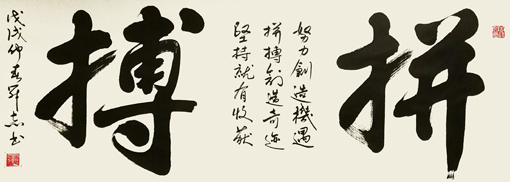 拼
努力創造機遇
拼搏創造奇迹
堅持就有收获
搏
戊戌仰春军志书